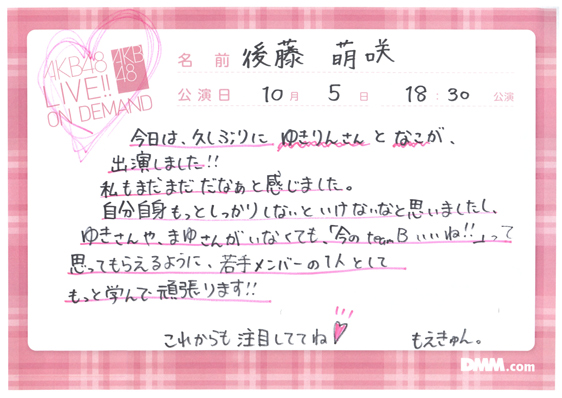 AKB48
LIVE!!
ON DEMAND
AKB
48
名前 後藤 萌咲
公演日 10月 5日 18:30 公演
今日は、久しぶりに ゆきりんさん と なこが、
出演しました!!
私もまだまだ だなぁと感じました。
自分自身もっとしっかりしないといけないなと思いましたし、
ゆきさんや、まゆさんがいなくても、「今の team B いいね!!」って
思ってもらえるように、若手メンバーの1人として
もっと学んで頑張ります!!
これからも 注目しててね もえきゅん。
DMM.com